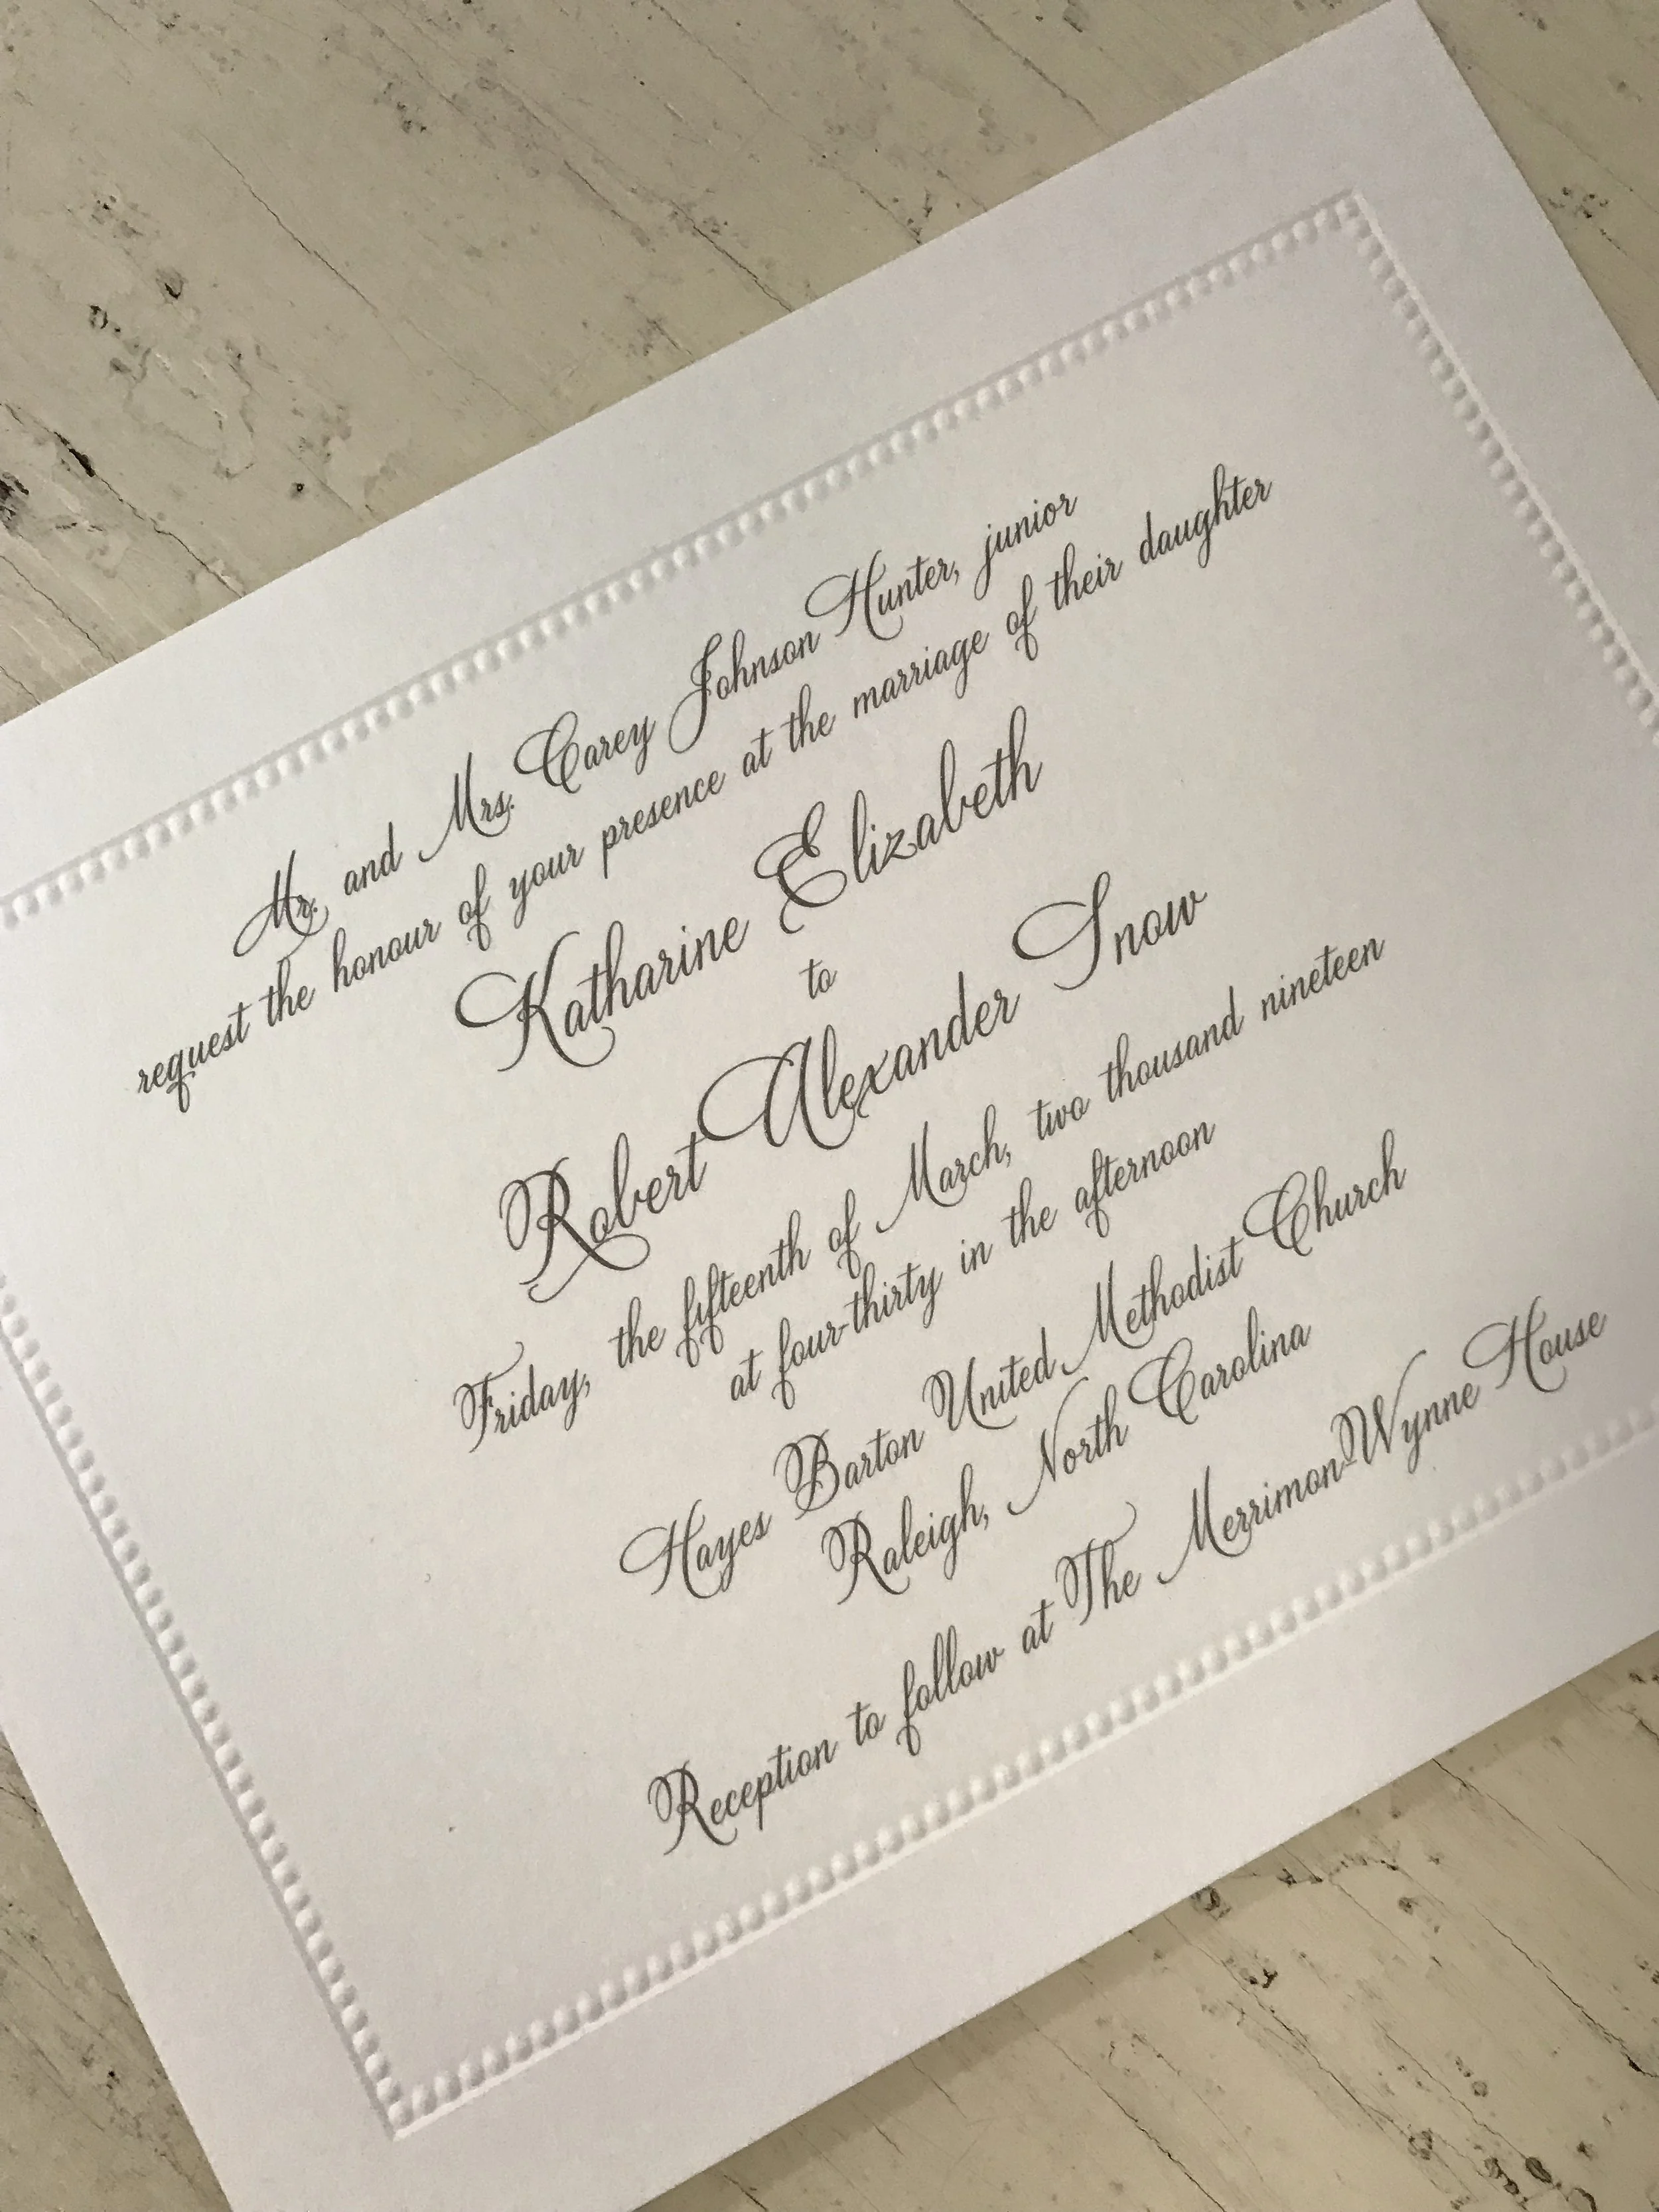 Mr. and Mrs. Carey Johnson Hunter, junior
request the honour of your presence at the marriage of their daughter
Katharine Elizabeth
to
Robert Alexander Snow
Friday, the fifteenth of March, two thousand nineteen
at four-thirty in the afternoon
Hayes Barton United Methodist Church
Raleigh, North Carolina
Reception to follow at The Merrimon-Wynne House